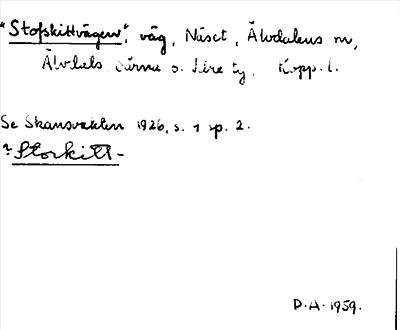 "Stofskittvägen", väg, Näset, Älvdalens m,
Älvdals Särna o. Idre tg, Kopp. l.
Se Skansvakten 1926, s. 1 sp. 2.
? Storkitt-
D.A. 1959.